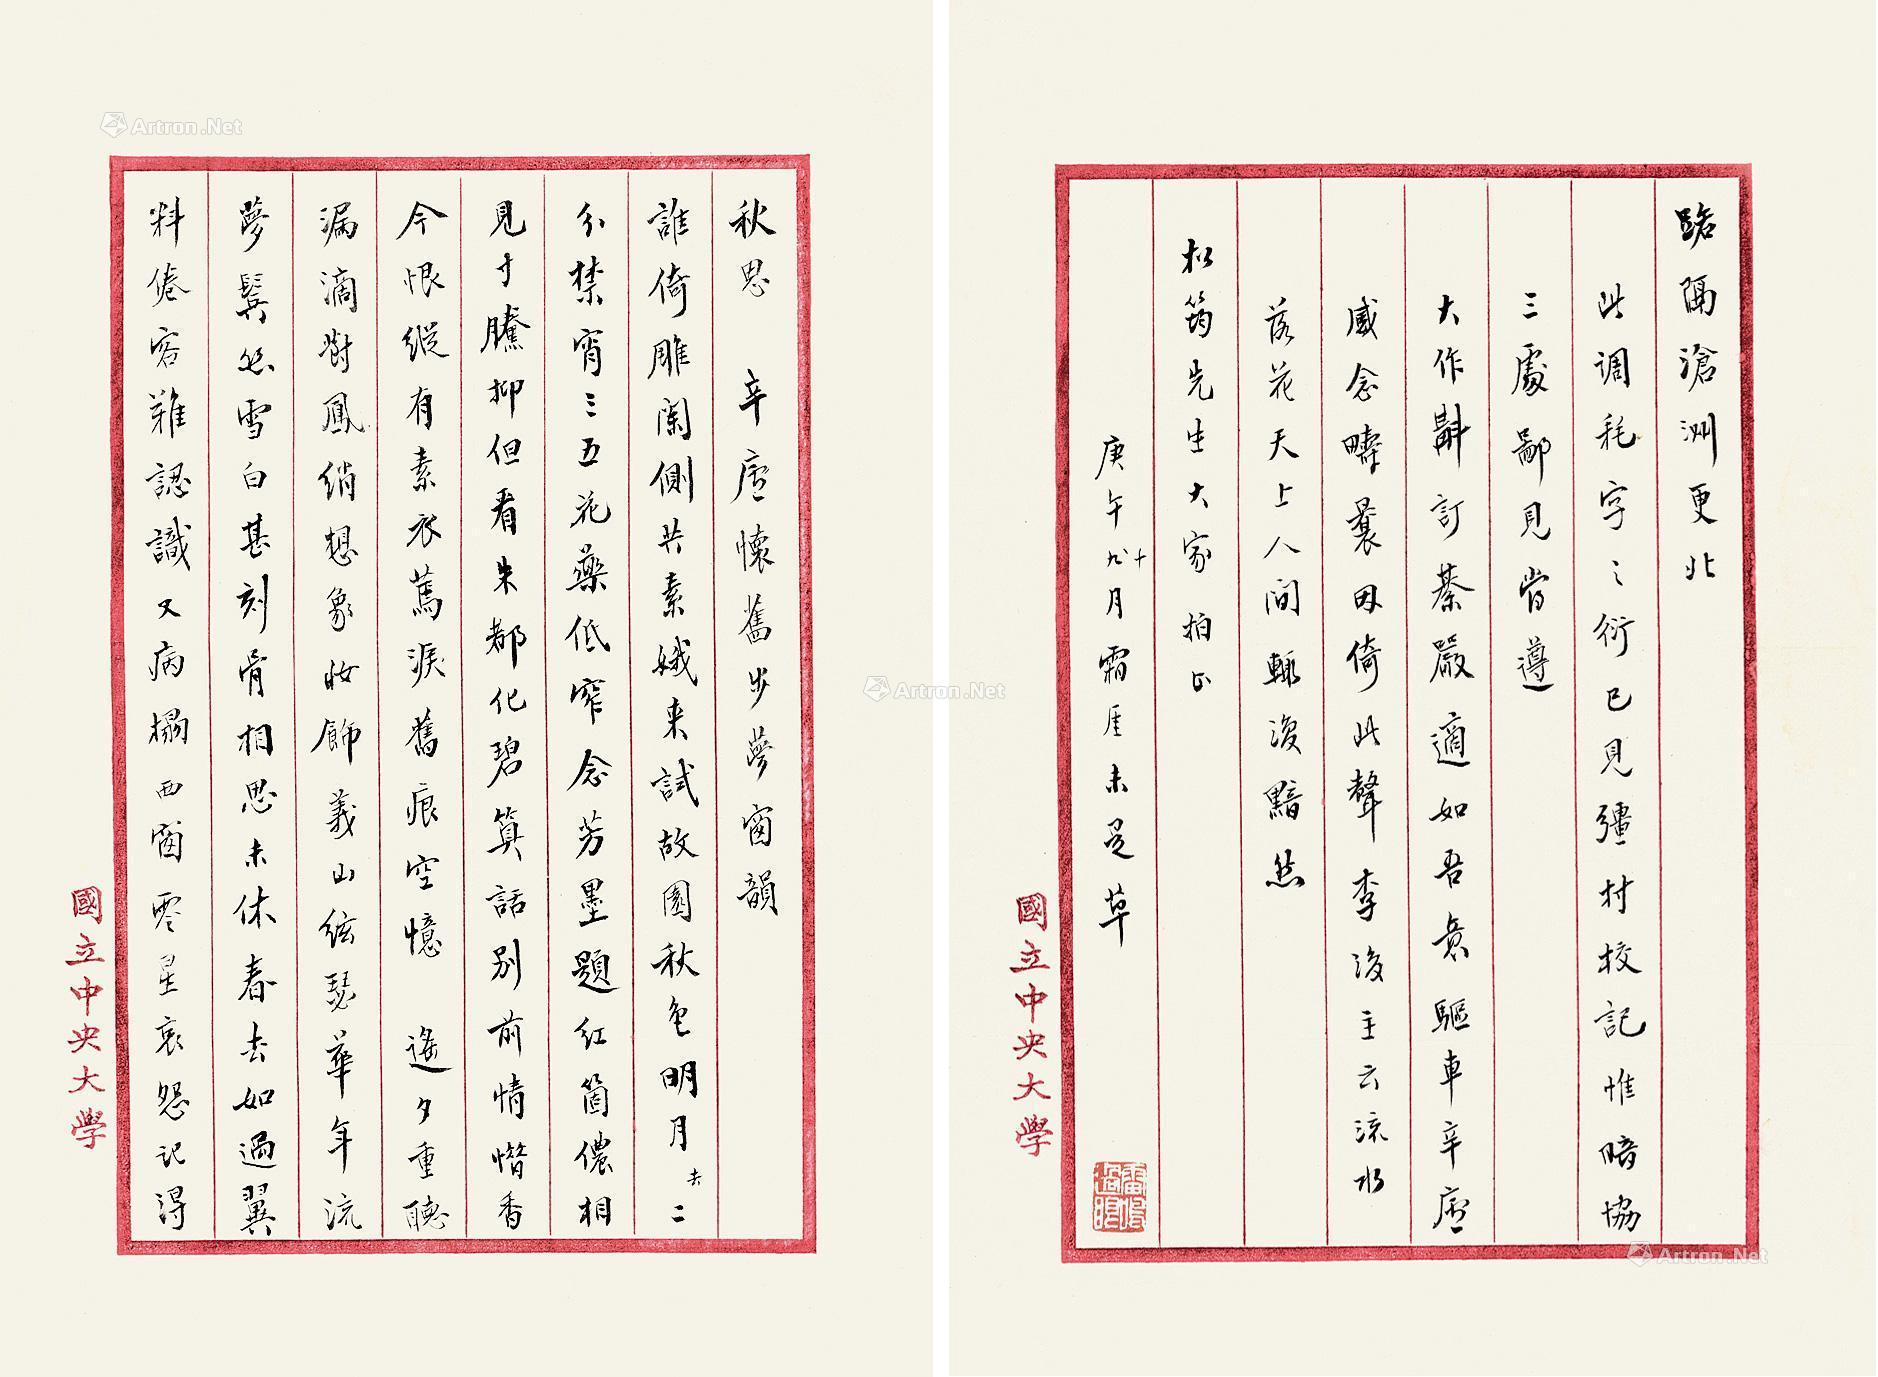 秋思 辛廬懷舊步夢窗韻
誰倚雕闌側共素娥来試故園秋色明月去二
分禁宵三五花藥低窄念芳墨題红箇儂相
見寸騰抑但看朱都化碧算話别前情惜香
今恨縱有素衣蔫淚舊痕空憶 遙夕重聽
漏滴對鳳綃想象妝飾義山絃瑟華年流
夢鬂絲雪白甚刻骨相思未休春去如過翼
料倦客難認識又病榻西窗零星哀怨记得
國立中央大學
路隔滄洲更北
此调耗字之衍已見彊村校記惟暗協
三處鄙見當遵
大作斠訂綦嚴適如吾意驅車辛廬
感念疇曩因倚此聲李後主云流水
落花天上人间輒複黯然
松筠先生大家拍正
庚午九十月霜厓未是草
國立中央大學
Artron.Net
Artron.Net
Artron.Net